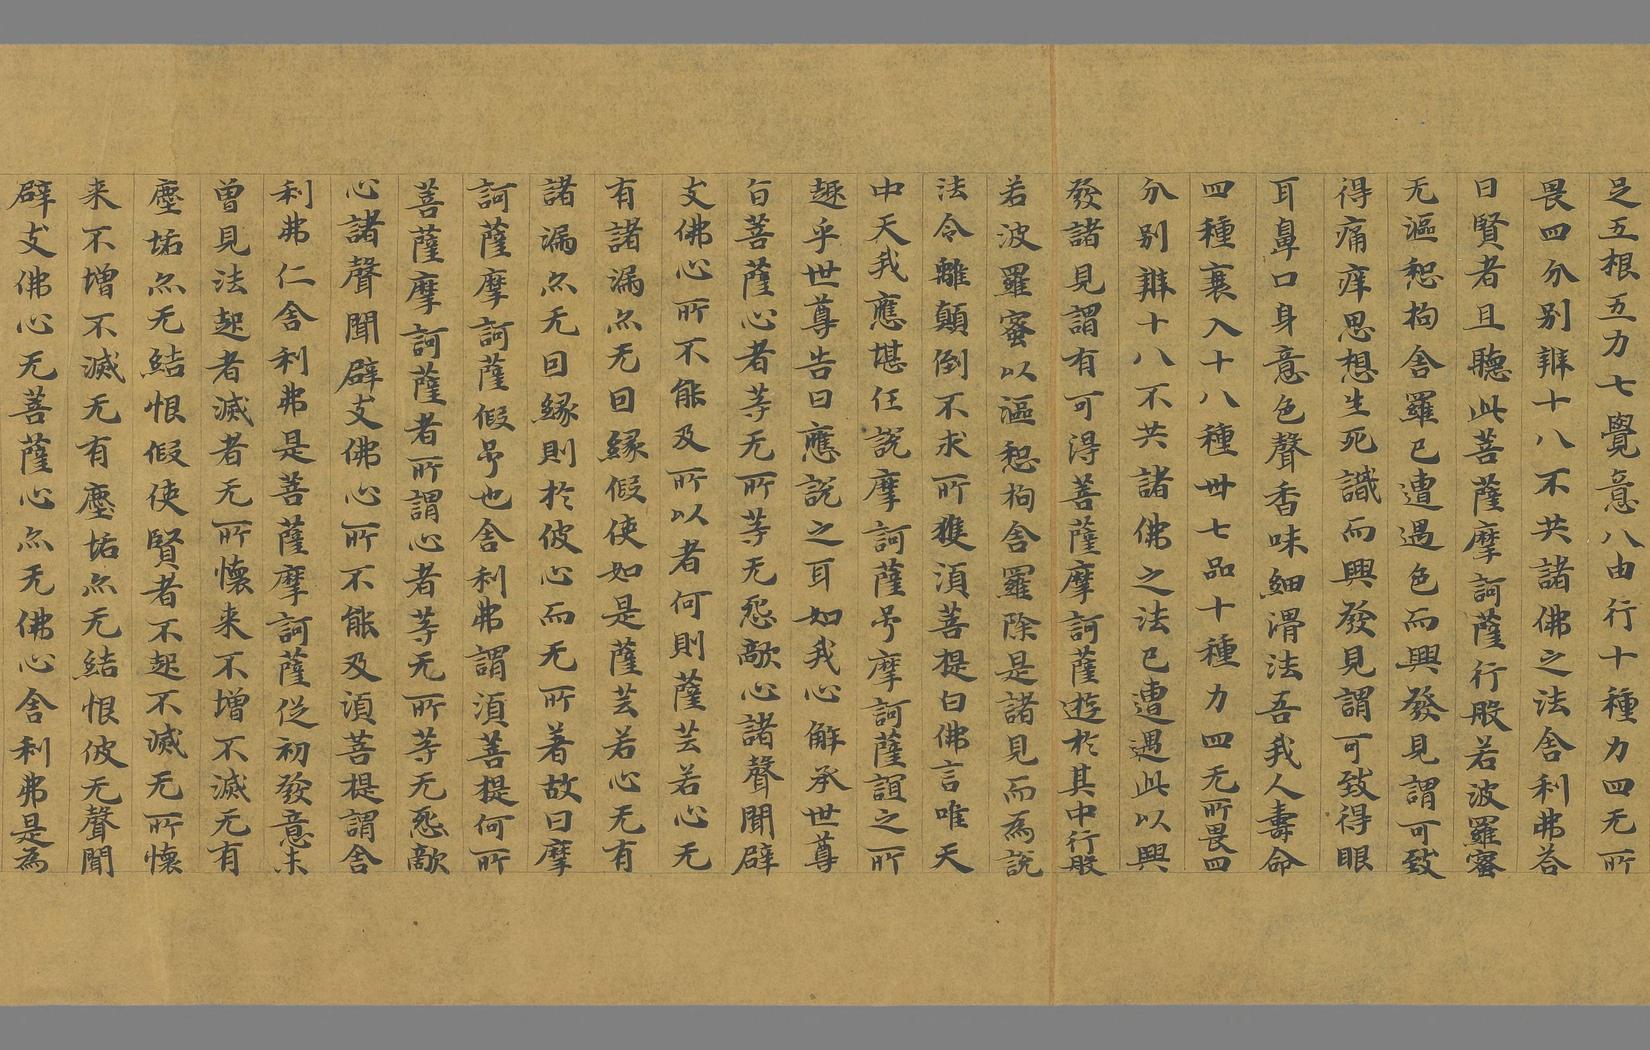 足五根五力七覺意八由行十種力四无所
畏四分别辯十八不共諸佛之法舍利弗荅
曰賢者且聽此菩薩摩訶薩行般若波羅蜜
无漚惒拘舍羅已遭遇色而興發見謂可致
得痛痒思想生死識而興發見謂可致得眼
耳鼻口身意色聲香味細滑法吾我人壽命
四種衰入十八種卅七品十種力四无所畏四
分别辯十八不共諸佛之法已遭遇此以興
發諸見謂有可得菩薩摩訶薩遊於其中行般
若波羅蜜以漚惒拘舍羅除是諸見而爲說
法令離顛倒不求所獲湏菩提白佛言唯天
中天我應堪任說摩訶薩号摩訶薩誼之所
趣乎世尊告曰應說之耳如我心解承世尊
旨菩薩心者等无所等无惌敵心諸聲聞辟
支佛心所不能及所以者何則薩芸若心无
有諸漏亦无因緣假使如是薩芸若心无有
諸漏亦无因緣則於彼心而无所著故曰摩
訶薩摩訶薩假号也舍利弗謂湏菩提何所
菩薩摩訶薩者所謂心者等无所等无惌敵
心諸聲聞辟支佛心所不能及湏菩提謂舍
利弗仁舍利弗是菩薩摩訶薩從初發意未
曾見法起者滅者无所懷来不增不滅无有
塵垢亦无結恨假使賢者不起不滅无所懷
来不增不滅无有塵垢亦无結恨彼无聲聞
辟支佛心无菩薩心亦无佛心舍利弗是爲